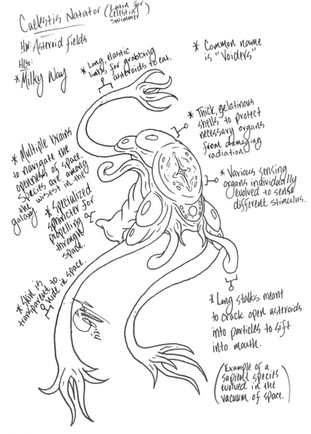 Caelestis Natator (Latin for
Celestial
Swimmer)
Asteroid fields
* Milky Way
* Long, elastic
limbs for grabbing
asteroids to eat.
* Common name
is "Voiders"
* Thick, gelatinous
shells to protect
necessary organs
from damaging
radiation.
* Multiple brains
to navigate the
openness of space.
Species are among
the wisest in the
galaxy
* Various sensing
organs individually
evolved to sense
different stimulus.
* Specialized
sphincter for
propelling
through
space.
* Skin is
transparent to
hide in space.
* Long stalks meant
to crack open asteroids
into particles to sift
into mouth.
(Example of a
sapient species
evolved in the
vacuum of space.)